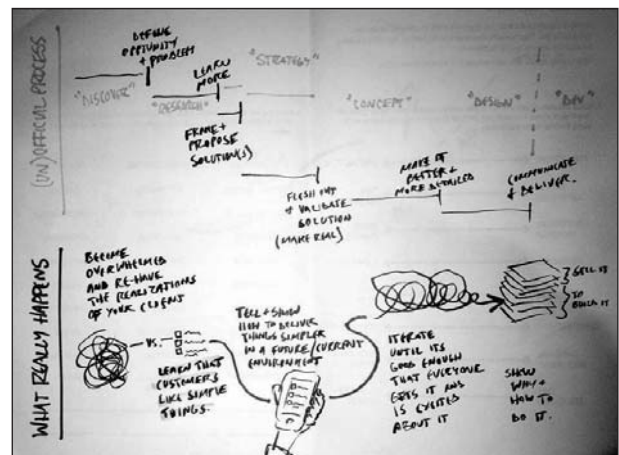 (UN)OFFICIAL PROCESS
DEFINE
OPPTUNITY
+ PROBLEM
"DISCOVER"
"RESEARCH"
LEARN
MORE
"STRATEGY"
FRAME +
PROPOSE
SOLUTION(S)
"CONCEPT"
"DESIGN"
"DEV"
FLESH OUT
+ VALIDATE
SOLUTION
(MAKE REAL)
MAKE IT
BETTER +
MORE DETAILED
COMMUNICATE
+ DELIVER.
WHAT REALLY HAPPENS
BECOME
OVERWHELMED
AND RE-HAVE
THE REALIZATIONS
OF YOUR CLIENT
VS.
LEARN THAT
CUSTOMERS
LIKE SIMPLE
THINGS.
TELL + SHOW
HOW TO DELIVER
THINGS SIMPLER
IN A FUTURE/CURRENT
ENVIRONMENT
ITERATE
UNTIL ITS
GOOD ENOUGH
THAT EVERYONE
GETS IT AND
IS EXCITED
ABOUT IT
SELL IT
TO
BUILD IT
SHOW
WHY +
HOW TO
DO IT.